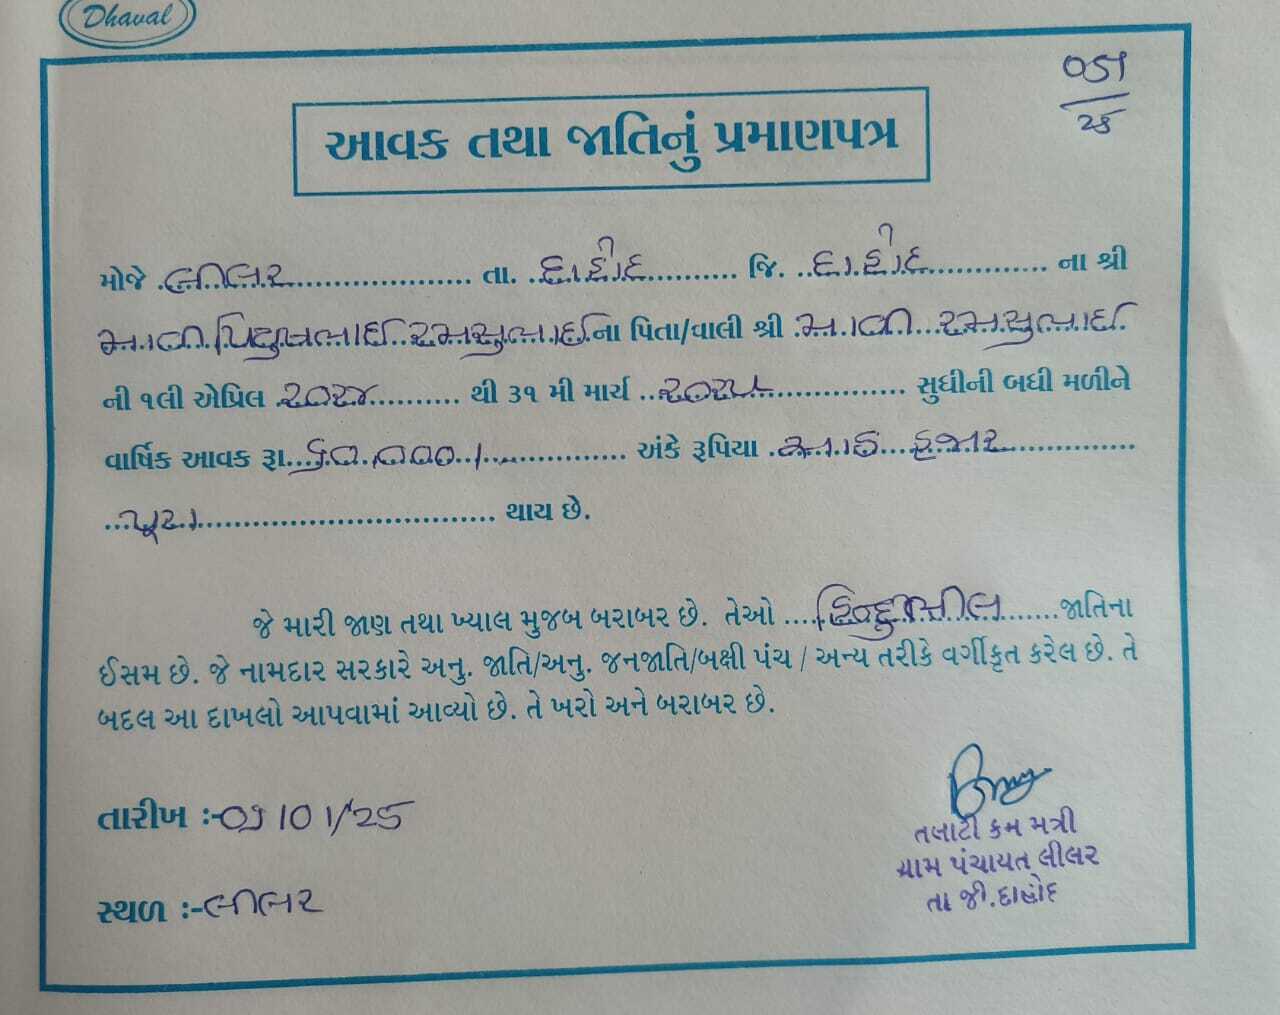 Dhaval
આવક તથા જાતિનું પ્રમાણપત્ર
મોજે લીલર તા. દાહોદ જિ. દાહોદ ના શ્રી
રમસુભાઈ ના પિતા/વાલી શ્રી રમસુભાઈ
ની ૧લી એપ્રિલ ૨૦૨૪ થી ૩૧ મી માર્ચ ૨૦૨૫ સુધીની બધી મળીને
વાર્ષિક આવક રૂા. ૬૦,૦૦૦/- અંકે રૂપિયા સાઠ હજાર
પૂરા થાય છે.
જે મારી જાણ તથા ખ્યાલ મુજબ બરાબર છે. તેઓ હિન્દુ ભીલ જાતિના
ઈસમ છે. જે નામદાર સરકારે અનુ. જાતિ/અનુ. જનજાતિ/બક્ષી પંચ / અન્ય તરીકે વર્ગીકૃત કરેલ છે. તે
બદલ આ દાખલો આપવામાં આવ્યો છે. તે ખરો અને બરાબર છે.
તારીખ :- /01/25
તલાટી કમ મંત્રી
ગ્રામ પંચાયત લીલર
તા જી. દાહોદ
સ્થળ :- લીલર